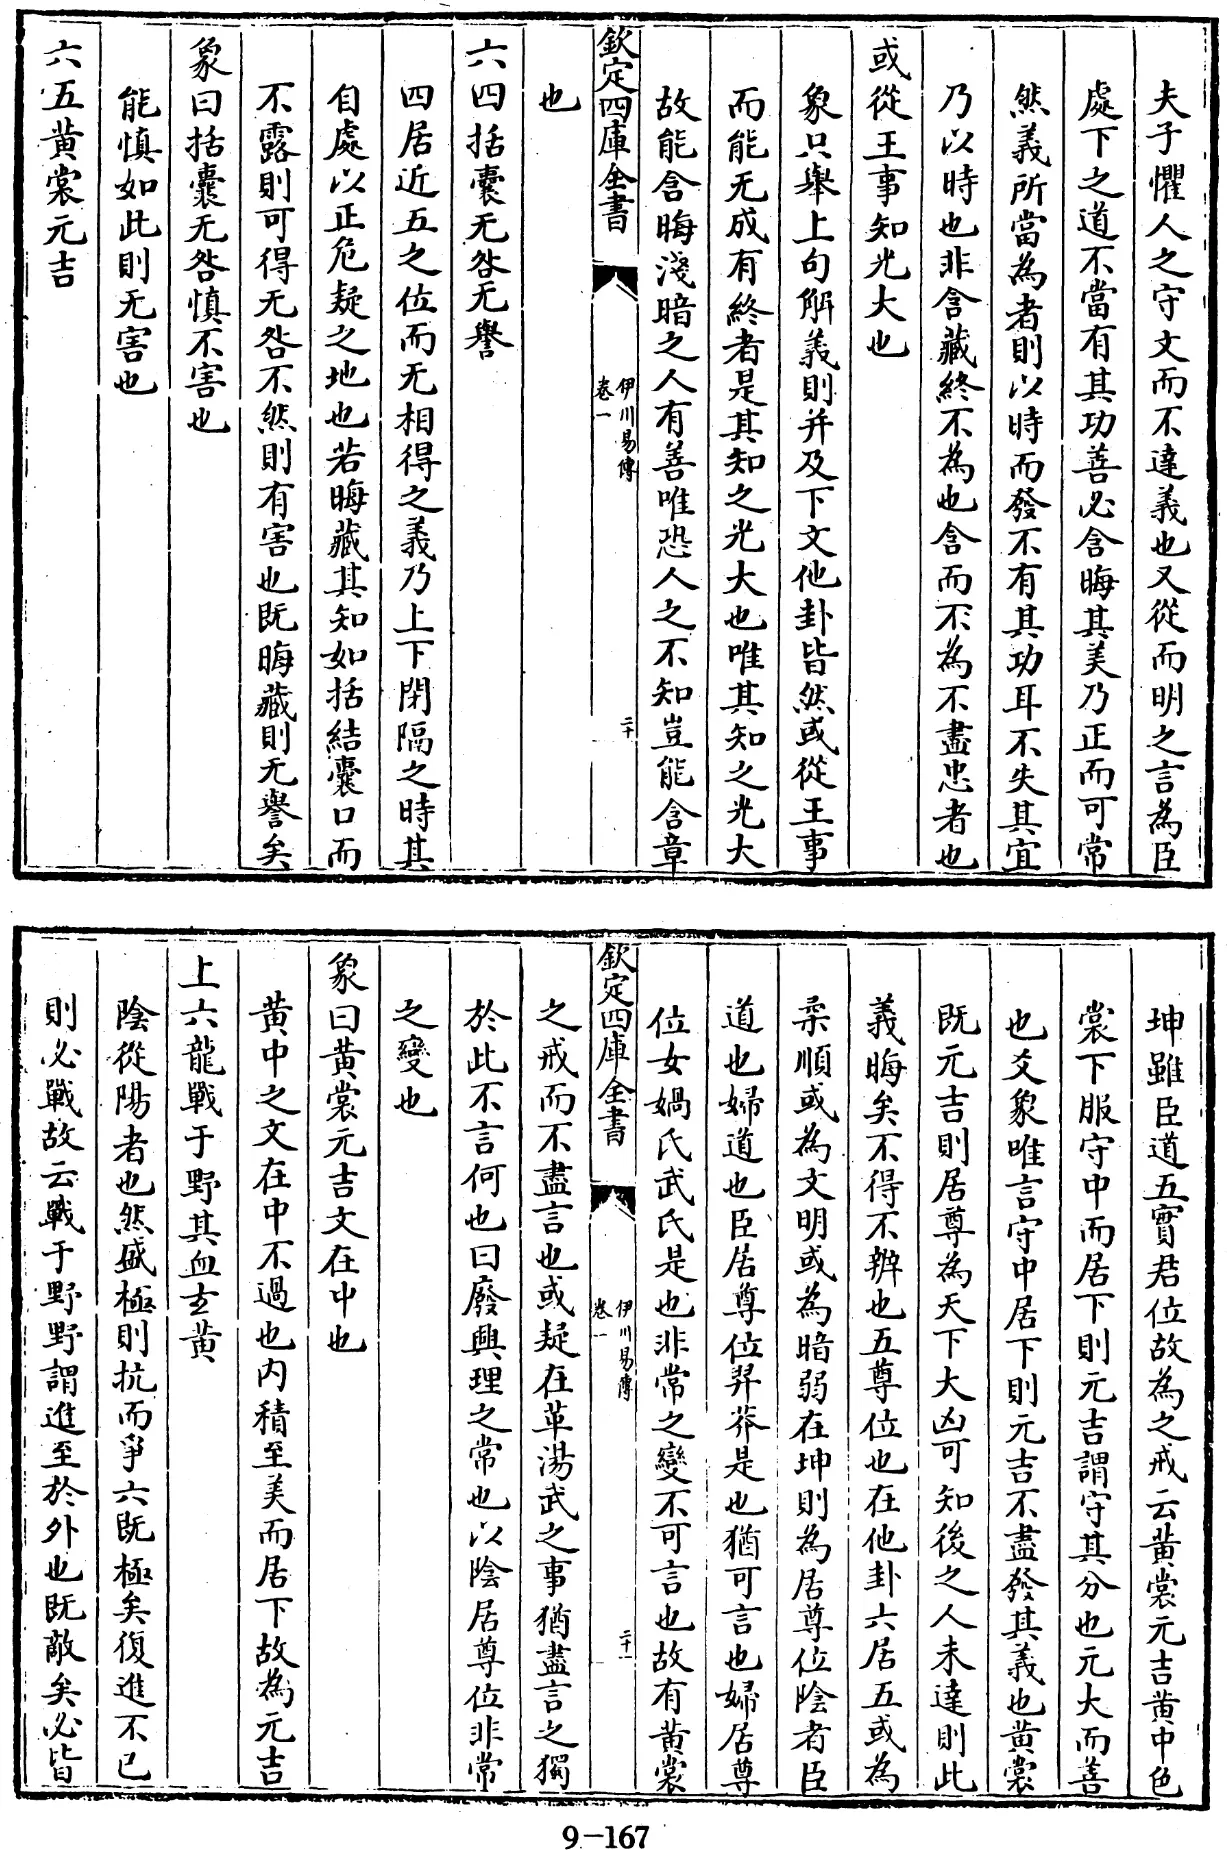 夫子懼人之守文而不達義也又從而明之言為臣
處下之道不當有其功善必含晦其美乃正而可常
然義所當為者則以時而發不有其功耳不失其宜
乃以時也非含藏終不為也含而不為不盡忠者也
或從王事知光大也
象只舉上句解義則并及下文他卦皆然或從王事
而能无成有終者是其知之光大也唯其知之光大
故能含晦淺暗之人有善唯恐人之不知豈能含章
欽定四庫全書
伊川易傳
卷一
二十
也
六四括囊无咎无譽
四居近五之位而无相得之義乃上下閉隔之時其
自處以正危疑之地也若晦藏其知如括結囊口而
不露則可得无咎不然則有害也既晦藏則无譽矣
象曰括囊无咎慎不害也
能慎如此則无害也
六五黄裳元吉
坤雖臣道五實君位故為之戒云黄裳元吉黄中色
裳下服守中而居下則元吉謂守其分也元大而善
也爻象唯言守中居下則元吉不盡發其義也黄裳
既元吉則居尊為天下大凶可知後之人未達則此
義晦矣不得不辨也五尊位也在他卦六居五或為
柔順或為文明或為暗弱在坤則為居尊位陰者臣
道也婦道也臣居尊位羿莽是也猶可言也婦居尊
位女媧氏武氏是也非常之變不可言也故有黄裳
欽定四庫全書
伊川易傳
卷一
二十一
之戒而不盡言也或疑在革湯武之事猶盡言之獨
於此不言何也曰廢興理之常也以陰居尊位非常
之變也
象曰黄裳元吉文在中也
黄中之文在中不過也内積至美而居下故為元吉
上六龍戰于野其血玄黄
陰從陽者也然盛極則抗而爭六既極矣復進不已
則必戰故云戰于野野謂進至於外也既敵矣必皆
9-167